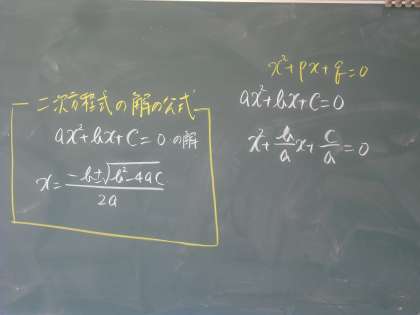 二次方程式の解の公式
ax²+bx+c=0の解
x=(-b±√(b²-4ac))/2a
x²+px+q=0
ax²+bx+c=0
x²+(b/a)x+(c/a)=0